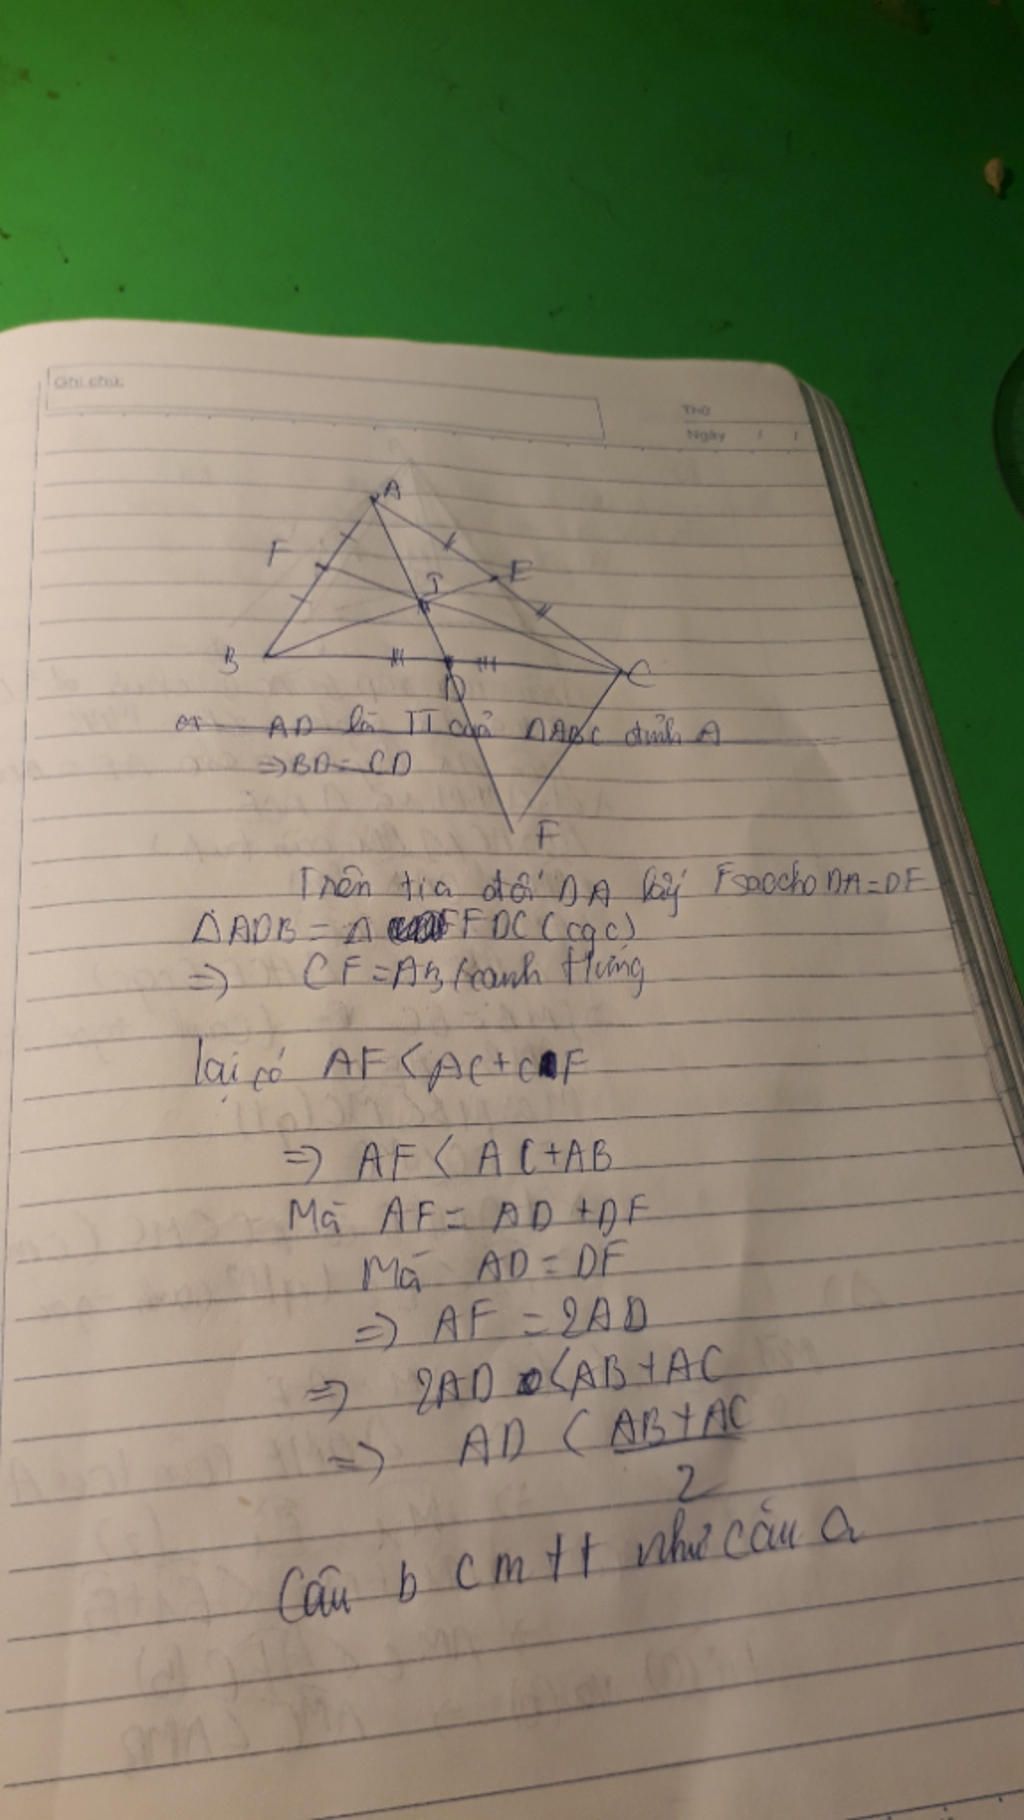 Ghi chú:
Thứ
Ngày / /
A
F
J
E
B
D
C
AD là TT của ΔABC đỉnh A
⇒ BD = CD
F
Trên tia đối DA lấy F sao cho DA = DF
ΔADB = Δ FDC (cgc)
⇒ CF = AB (canh tứng
lại có AF < AC + CF
⇒ AF < AC + AB
Mà AF = AD + DF
Mà AD = DF
⇒ AF = 2AD
⇒ 2AD < AB + AC
⇒ AD < AB + AC
2
Câu b cm tt như câu a